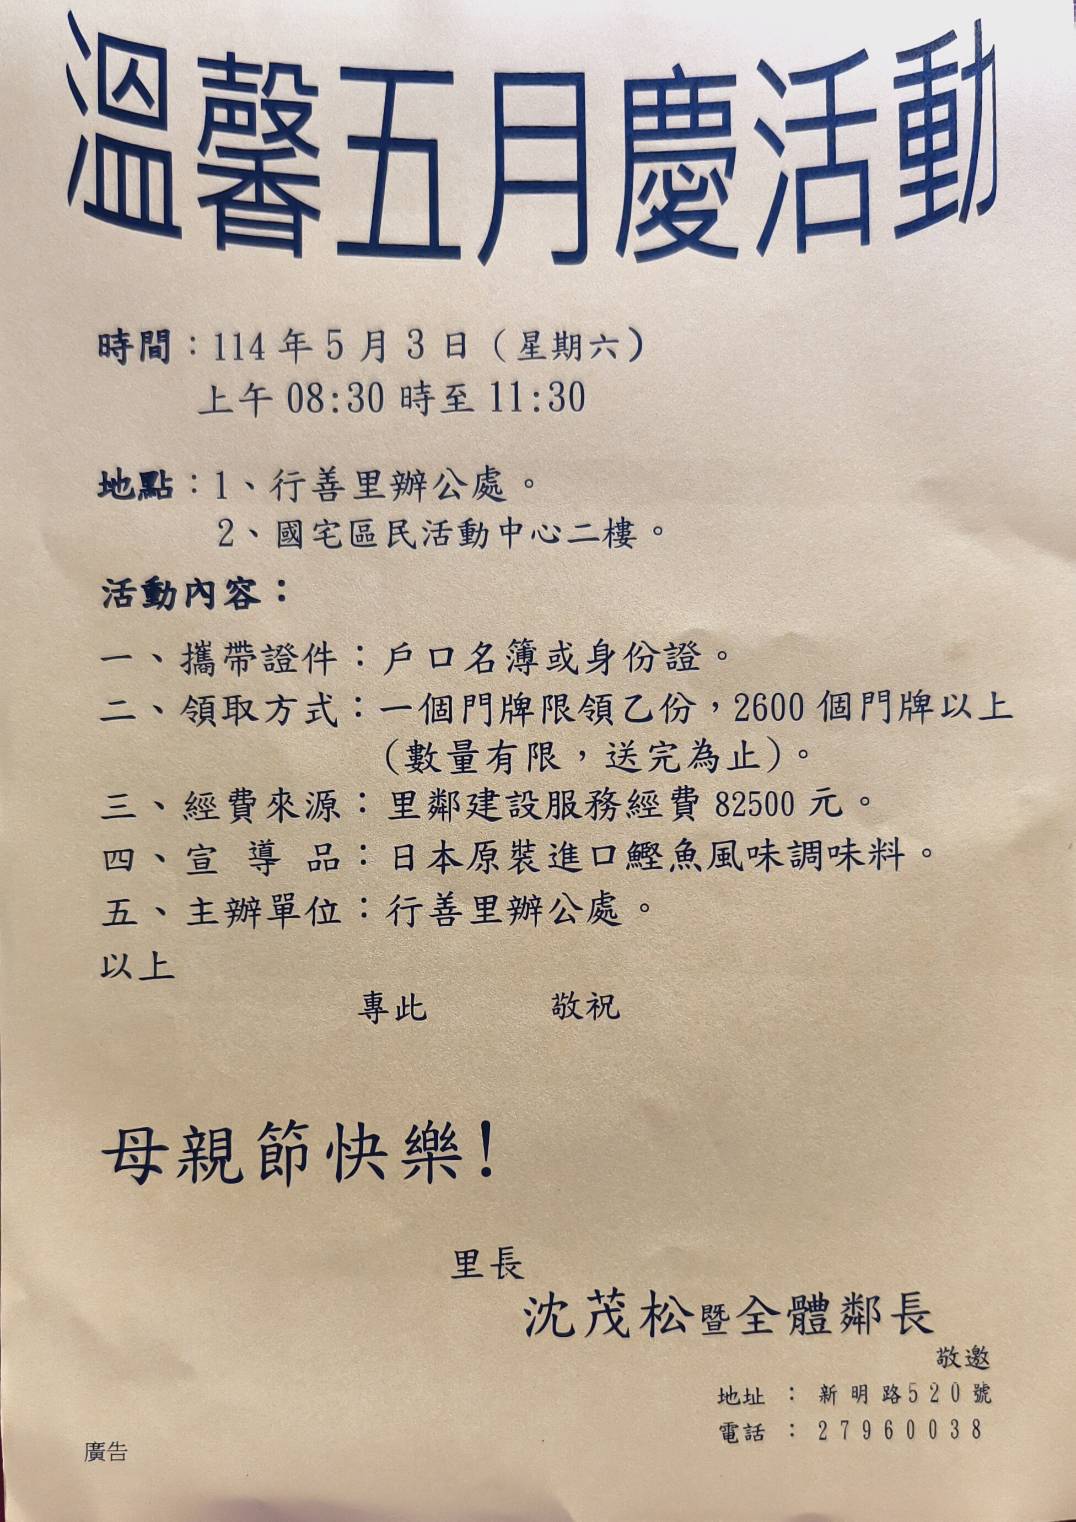 溫馨五月慶活動
時間：114 年 5 月 3 日（星期六）
上午 08:30 時至 11:30
地點：1、行善里辦公處。
2、國宅區民活動中心二樓。
活動內容：
一、攜帶證件：戶口名簿或身份證。
二、領取方式：一個門牌限領乙份，2600 個門牌以上
（數量有限，送完為止）。
三、經費來源：里鄰建設服務經費 82500 元。
四、宣 導 品：日本原裝進口鰹魚風味調味料。
五、主辦單位：行善里辦公處。
以上
專此 敬祝
母親節快樂！
里長
沈茂松暨全體鄰長
敬邀
地址 ： 新明路520號
電話 ： 27960038
廣告